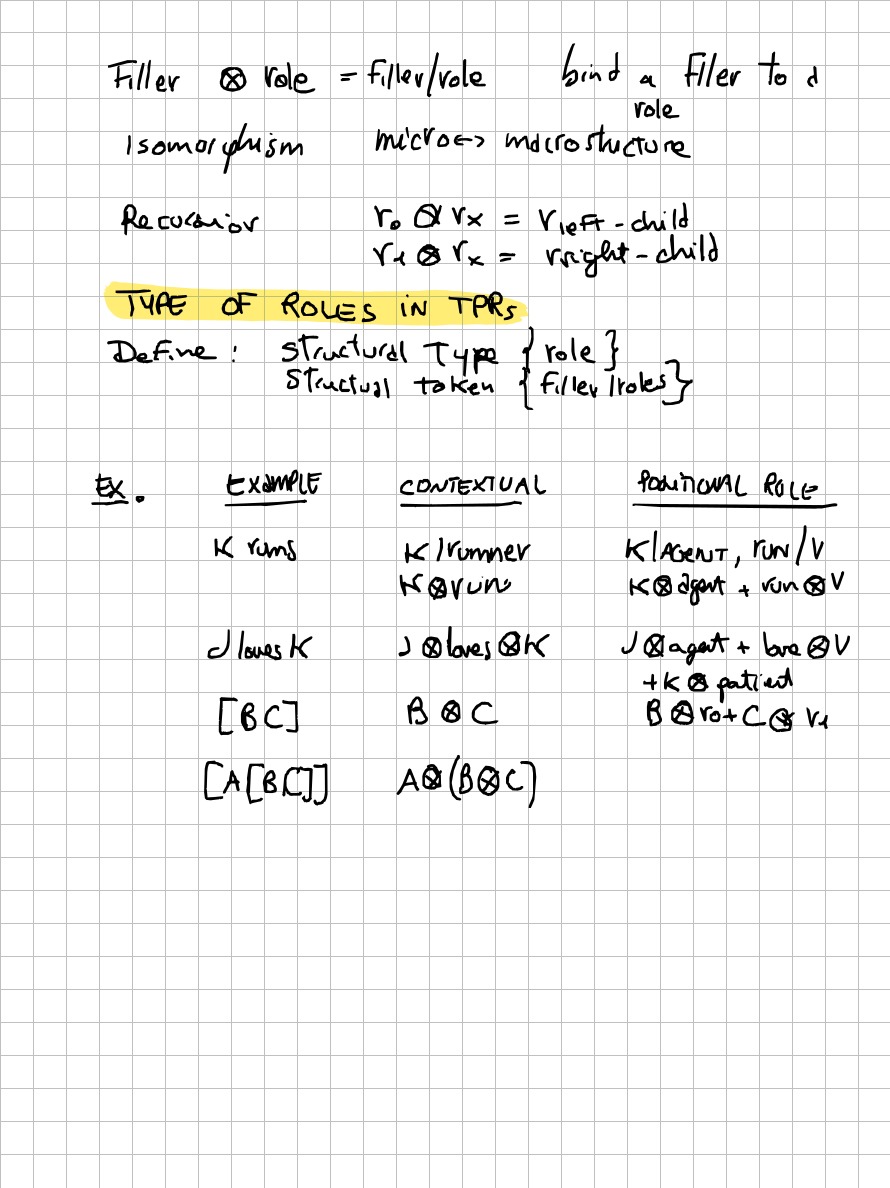 Filler ⊗ role = filler/role bind a filler to a
role
Isomorphism micro↔macrostucture
Recursion r₀ ⊗ rx = r left-child
r₁ ⊗ rx = r right-child
TYPE OF ROLES IN TPRs
Define: structural Type { role }
Structual token { filler/roles }
EX. EXAMPLE CONTEXTUAL POSITIONAL ROLE
K runs K/runner K/AGENT, run/V
K⊗run K⊗agent + run⊗V
J loves K J⊗loves⊗K J⊗agent + love⊗V
+K⊗patient
[BC] B⊗C B⊗r₀+C⊗r₁
[A[BC]] A⊗(B⊗C)